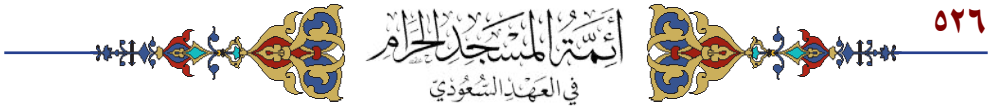 ٥٢٦
أَئِمَّةُ المَسْجِدِ الحَرَامِ
فِي العَهْدِ السُّعُودِيّ